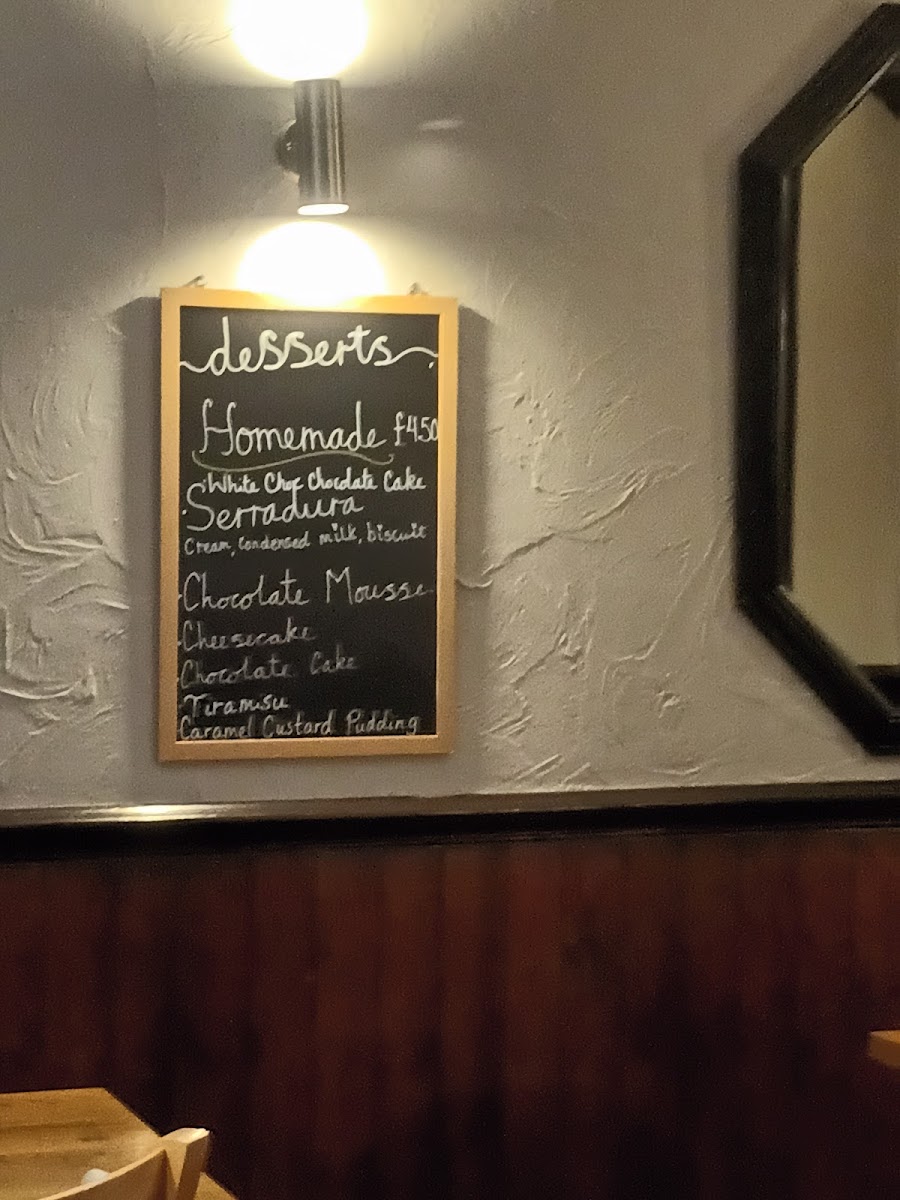 desserts
Homemade £450
·White Choc Chocolate Cake
·Serradura
Cream, Condensed milk, biscuit
·Chocolate Mousse
·Cheesecake
·Chocolate Cake
·Tiramisu
Caramel Custard Pudding